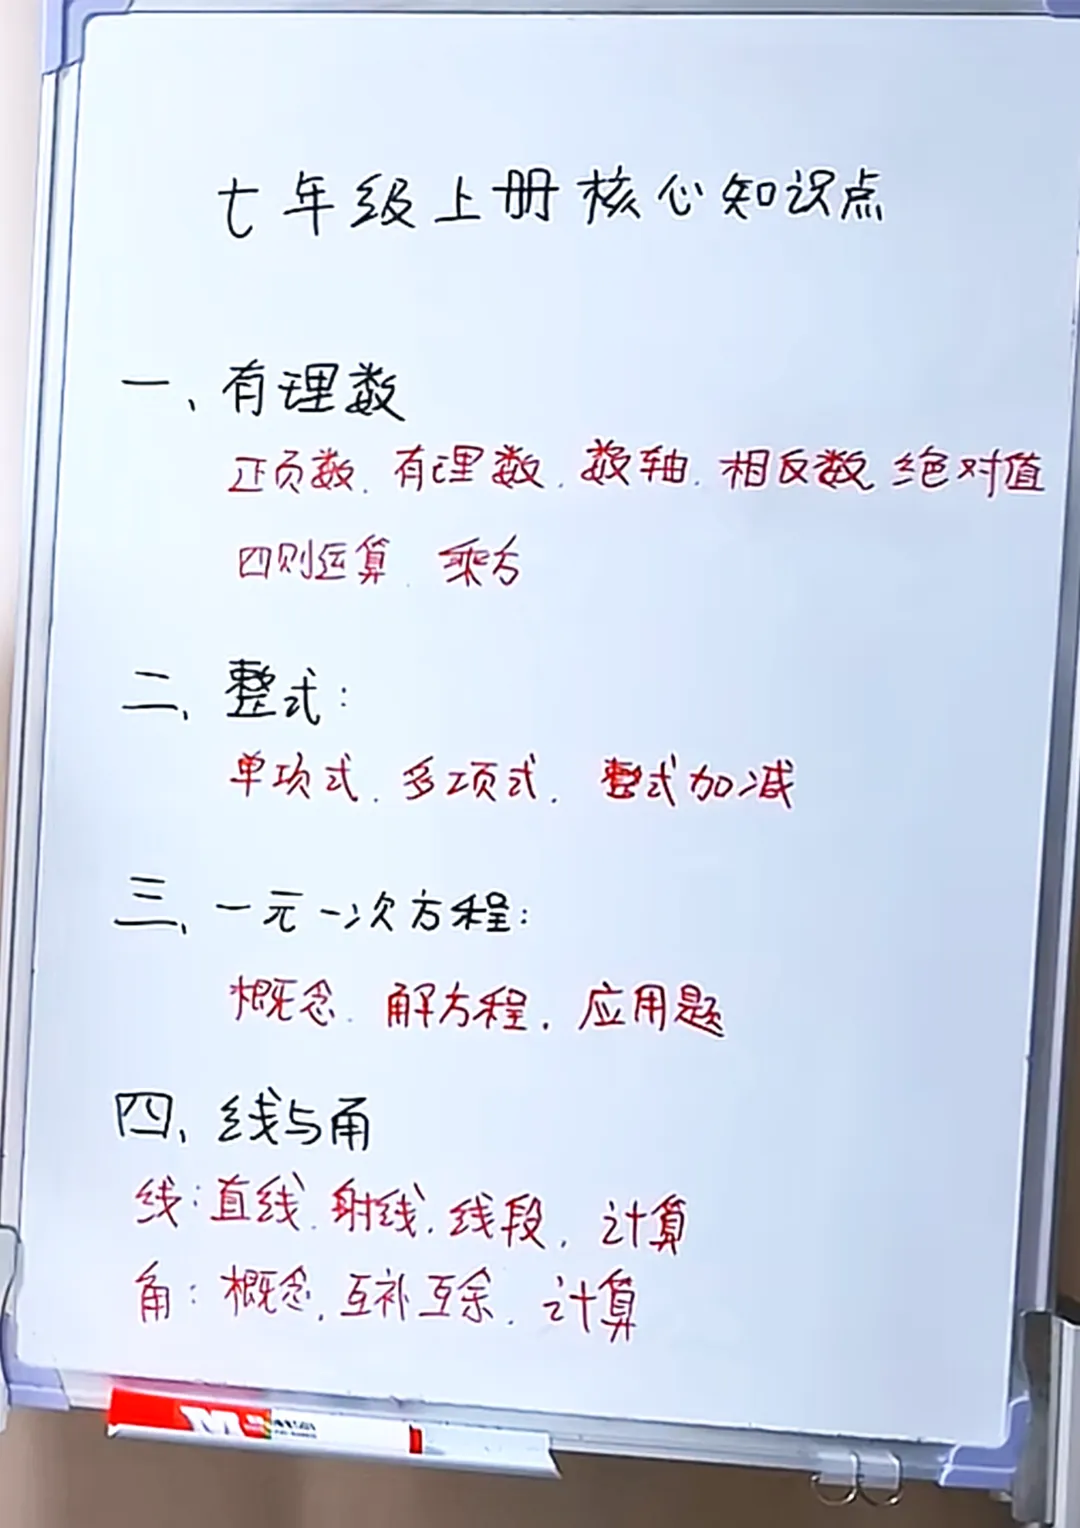 七年级上册核心知识点
一、有理数
正负数、有理数、数轴、相反数 绝对值
四则运算、乘方
二、整式：
单项式、多项式、整式加减
三、一元一次方程：
概念、解方程、应用题
四、线与角
线：直线、射线、线段、计算
角：概念、互补互余、计算